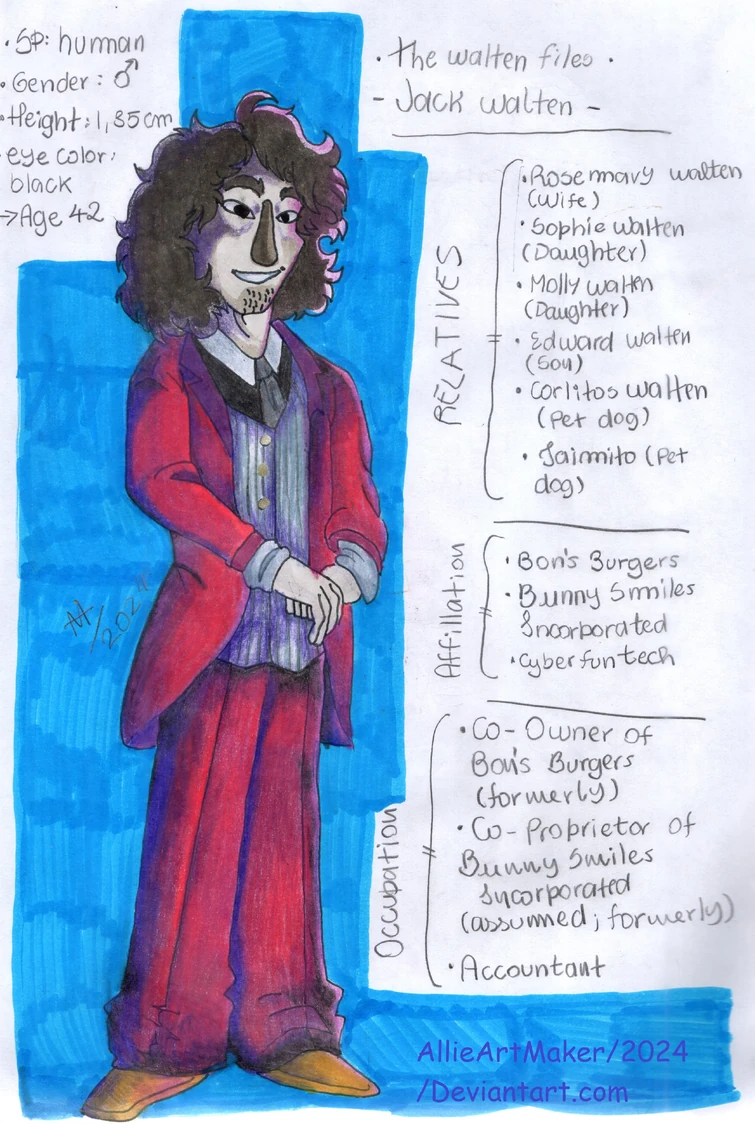 • SP: human
• Gender: ♂
• Height: 1,85cm
• eye color:
black
→ Age 42
• The walten files •
- Jack walten -
RELATIVES
• Rosemary walten
(Wife)
• Sophie walten
(Daughter)
• Molly walten
(Daughter)
• Edward walten
(Son)
• Corlitos walten
(Pet dog)
• Jaimito (Pet
dog)
Affillation
• Bon's Burgers
• Bunny Smiles
Incorporated
• Cyberfun tech
Occupation
• Co-Owner of
Bon's Burgers
(formerly)
• Co-Proprietor of
Bunny Smiles
Incorporated
(assumed; formerly)
• Accountant
AA/2024
AllieArtMaker/2024
/Deviantart.com